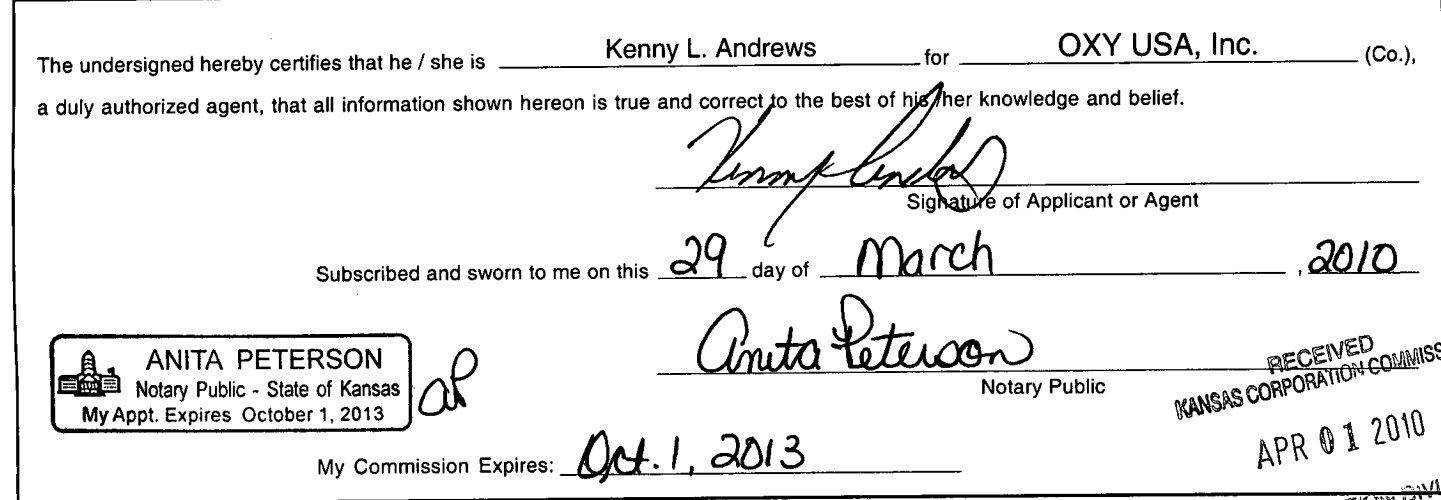 The undersigned hereby certifies that he / she is Kenny L. Andrews for OXY USA, Inc. (Co.),
a duly authorized agent, that all information shown hereon is true and correct to the best of his/her knowledge and belief.
Signature of Applicant or Agent
Subscribed and sworn to me on this 29 day of March , 2010
Anita Peterson
Notary Public
ANITA PETERSON
Notary Public - State of Kansas
My Appt. Expires October 1, 2013
aP
RECEIVED
KANSAS CORPORATION COMMISS
APR 01 2010
My Commission Expires: Oct. 1, 2013